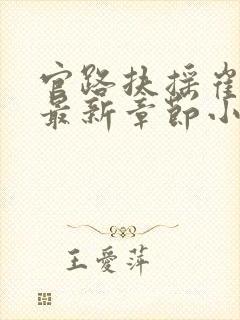 官路扶摇崔
最新章节小
王爱萍